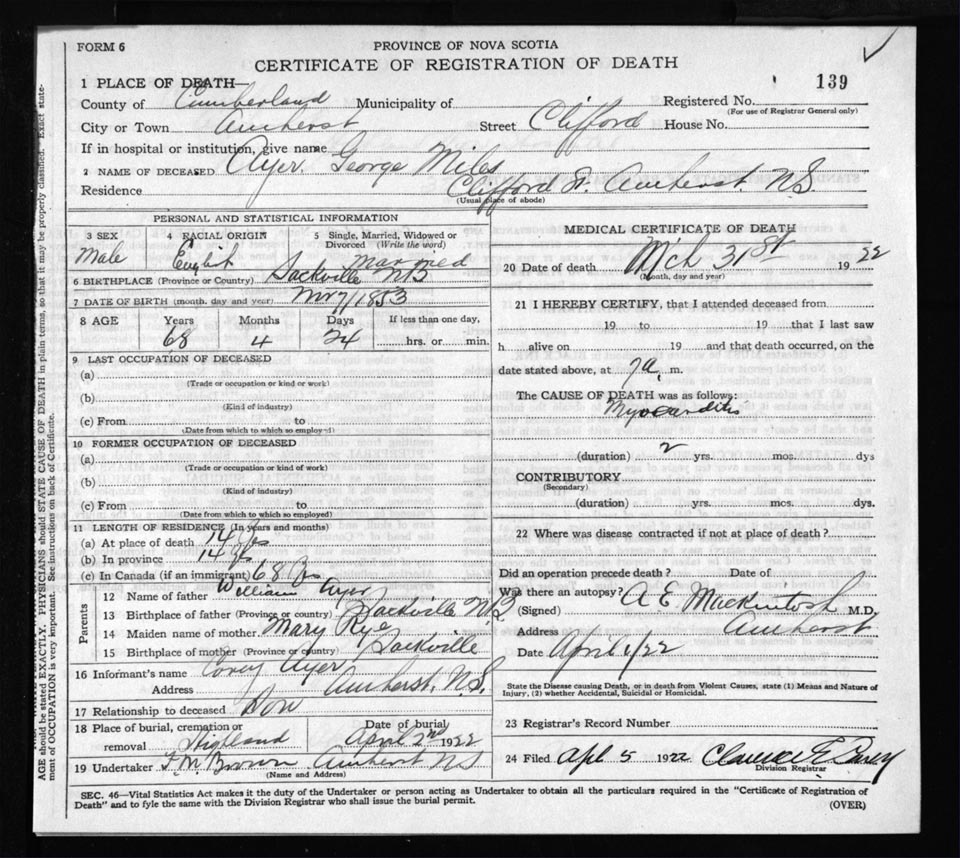 FORM 6
PROVINCE OF NOVA SCOTIA
CERTIFICATE OF REGISTRATION OF DEATH
1 PLACE OF DEATH—
139
County of Cumberland Municipality of Registered No.
(For use of Registrar General only)
City or Town Amherst Street Clifford House No.
If in hospital or institution, give name
2 NAME OF DECEASED Ayer. George Miles
Residence Clifford St. Amherst N.S.
(Usual place of abode)
PERSONAL AND STATISTICAL INFORMATION
3 SEX 4 RACIAL ORIGIN 5 Single, Married, Widowed or Divorced (Write the word)
Male English Married
6 BIRTHPLACE (Province or Country) Sackville NB
7 DATE OF BIRTH (month, day and year) Nov 7/1853
8 AGE Years Months Days If less than one day,
68 4 24 hrs. or min.
9 LAST OCCUPATION OF DECEASED
(a)
(Trade or occupation or kind or work)
(b)
(Kind of industry)
(c) From to
(Date from which to which so employed)
10 FORMER OCCUPATION OF DECEASED
(a)
(Trade or occupation or kind of work)
(b)
(Kind of industry)
(c) From to
(Date from which to which so employed)
11 LENGTH OF RESIDENCE (In years and months)
(a) At place of death 14 yrs
(b) In province 14 yrs
(c) In Canada (if an immigrant) 68 yrs
Parents
12 Name of father William Ayer
13 Birthplace of father (Province or country) Sackville N.B.
14 Maiden name of mother Mary Rye
15 Birthplace of mother (Province or country) Sackville
16 Informant's name Ayer
Address Amherst, N.S.
17 Relationship to deceased Son
18 Place of burial, cremation or removal Highland Date of burial April 2nd 1922
19 Undertaker F.M. Brown Amherst NS
(Name and Address)
MEDICAL CERTIFICATE OF DEATH
20 Date of death Mch 31st 1922
(Month, day and year)
21 I HEREBY CERTIFY, that I attended deceased from
19 to 19 that I last saw
h alive on 19 and that death occurred, on the
date stated above, at 7 a, m.
The CAUSE OF DEATH was as follows:
Myocarditis
(duration) 2 yrs. mos. dys
CONTRIBUTORY
(Secondary)
(duration) yrs. mos. dys.
22 Where was disease contracted if not at place of death?
Did an operation precede death? Date of
Was there an autopsy?
(Signed) A E Mackintosh M.D.
Address Amherst
Date April 1/22
State the Disease causing Death, or in death from Violent Causes, state (1) Means and Nature of
Injury, (2) whether Accidental, Suicidal or Homicidal.
23 Registrar's Record Number
24 Filed Apl 5 1922 Clarence E
Division Registrar
SEC. 46—Vital Statistics Act makes it the duty of the Undertaker or person acting as Undertaker to obtain all the particulars required in the "Certificate of Registration of
Death" and to fyle the same with the Division Registrar who shall issue the burial permit.
(OVER)
AGE should be stated EXACTLY. PHYSICIANS should STATE CAUSE OF DEATH in plain terms, so that it may be properly classified. Exact state-
ment of OCCUPATION is very important. See instructions on back of Certificate.